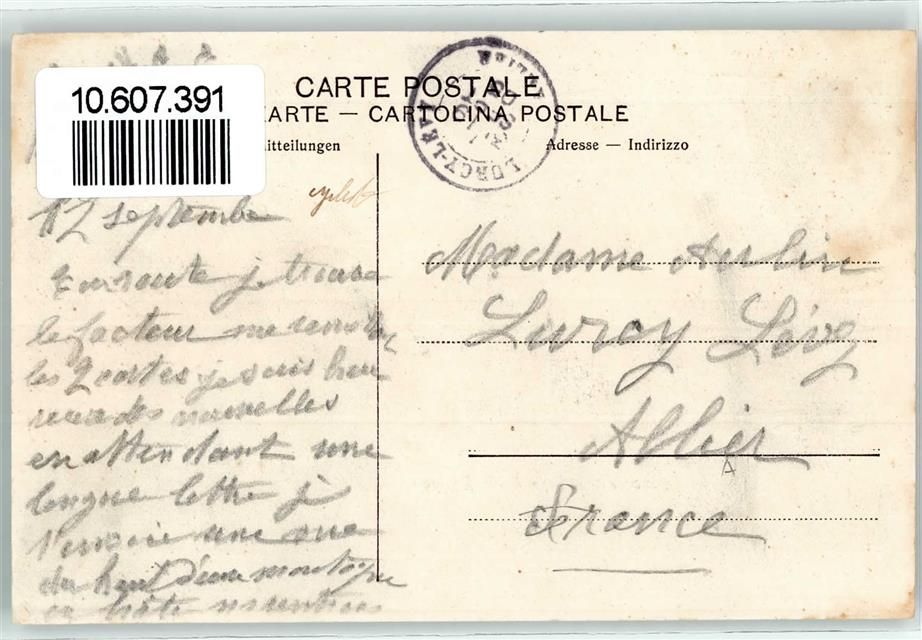 10.607.391
CARTE POSTALE
KARTE — CARTOLINA POSTALE
Mitteilungen
Adresse — Indirizzo
LURCY-LEVY
ALLIER
12 septembre
En route je trouve
le facteur me remet
les 2 cartes je suis heu
reux des nouvelles
en attendant une
longue lettre je
t'envoie une vue
du haut d'une montagne
en hâte
Madame Aublin
Lurcy Lévy
Allier
France